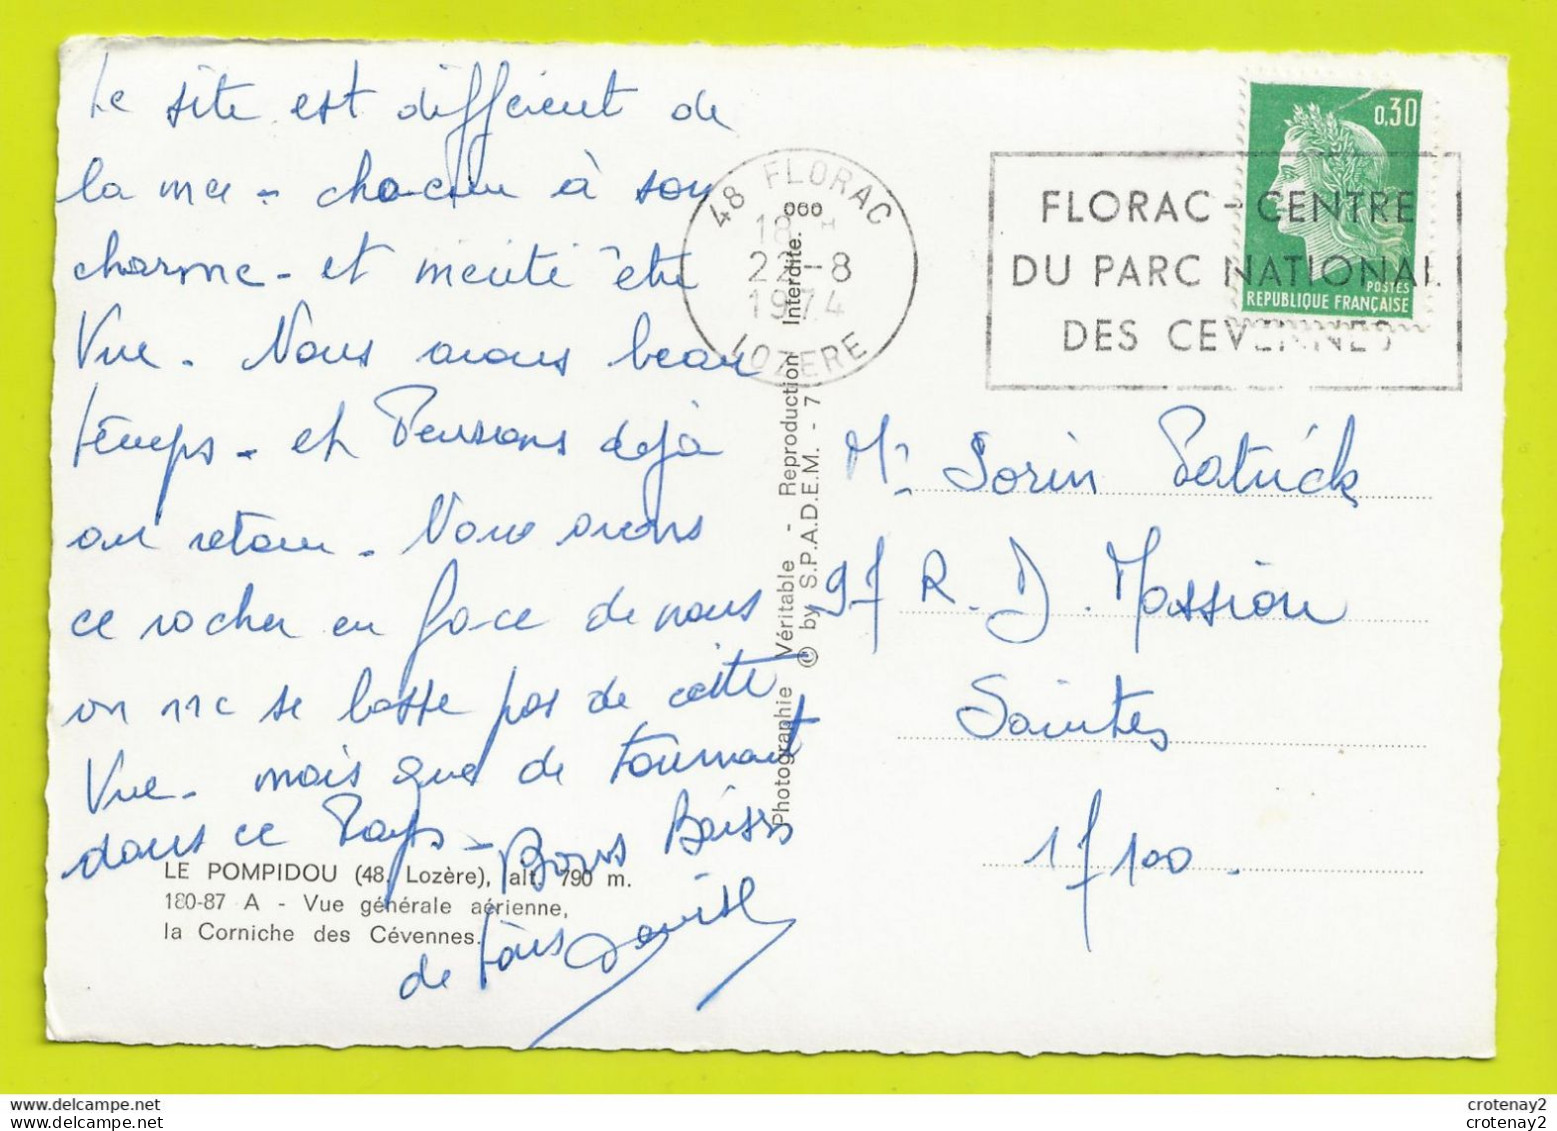 Le site est différent de
la mer - chacun à son
charme - et mérite être
Vue. Nous avons beau
temps - et Pensons déjà
au retour. Nous avons
ce rocher en face de nous
on ne se lasse pas de cette
Vue. mais que de tournant
dans ce Pays - Bons Baisers
de tous
LE POMPIDOU (48. Lozère), alt. 790 m.
180-87 A - Vue générale aérienne,
la Corniche des Cévennes.
Photographie Véritable - Reproduction Interdite.
© by S.P.A.D.E.M. - 7
48 FLORAC
18 H
22-8
1974
LOZERE
FLORAC - CENTRE
DU PARC NATIONAL
DES CEVENNES
0,30
POSTES
REPUBLIQUE FRANÇAISE
Mr Sorin Patrick
97 R. D. Massiou
Saintes
17100.
crotenay2
crotenay2